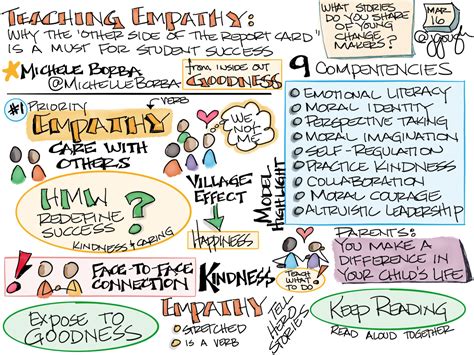 TEACHING EMPATHY:
WHY THE "OTHER SIDE OF THE REPORT CARD"
IS A MUST FOR STUDENT SUCCESS
WHAT STORIES
DO YOU SHARE
OF YOUNG
CHANGE
MAKERS?
MAR
16
MICHELE BORBA
@MICHELEBORBA
FROM INSIDE OUT
GOODNESS
#1 PRIORITY
VERB
EMPATHY
CARE WITH
OTHERS
WE,
NOT
ME
9 COMPETENCIES
EMOTIONAL LITERACY
MORAL IDENTITY
PERSPECTIVE TAKING
MORAL IMAGINATION
SELF-REGULATION
PRACTICE KINDNESS
COLLABORATION
MORAL COURAGE
ALTRUISTIC LEADERSHIP
MODEL
HIGHLIGHT
HMW
REDEFINE
SUCCESS
?
KINDNESS & CARING
VILLAGE
EFFECT
HAPPINESS
PARENTS:
YOU MAKE A
DIFFERENCE IN
YOUR CHILD'S LIFE
TEACH
WHAT
TO DO
!
FACE-TO-FACE
CONNECTION
KINDNESS
EXPOSE TO
GOODNESS
EMPATHY
STRETCHED
IS A VERB
TELL
HERO
STORIES
KEEP READING
READ ALOUD TOGETHER